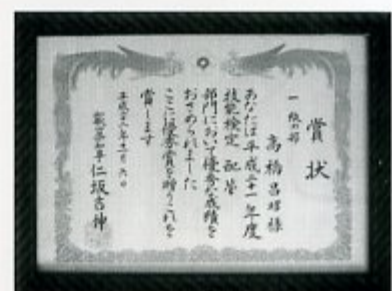 賞状
一級の部
高橋昌 様
あなたは平成二十一年度
技能検定 配管
部門において優秀な成績を
おさめられました
ここに優秀賞を贈りこれを
賞します
平成 年十一月 六日
仁坂吉伸